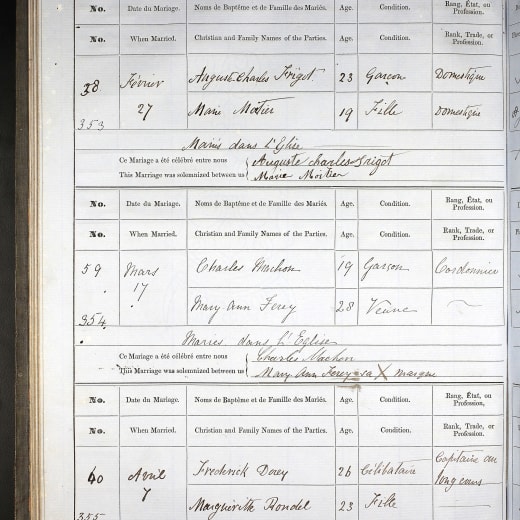 No. Date du Mariage. Noms de Baptême et de Famille des Mariés. Age. Condition. Rang, État, ou Profession.
No. When Married. Christian and Family Names of the Parties. Age. Condition. Rank, Trade, or Profession.
38 Février Auguste Charles Frigot 23 Garçon Domestique
27 Marie Mortier 19 Fille Domestique
353
Mariés dans L'Eglise
Ce Mariage a été célébré entre nous Auguste Charles Frigot
This Marriage was solemnized between us Marie Mortier
No. Date du Mariage. Noms de Baptême et de Famille des Mariés. Age. Condition Rang, État, ou Profession.
No. When Married. Christian and Family Names of the Parties. Age. Condition. Rank, Trade, or Profession.
59 Mars Charles Machon 19 Garçon Cordonnier
17 Mary Ann Ferey 28 Veuve
354
Mariés dans L'Eglise
Ce Mariage a été célébré entre nous Charles Machon
This Marriage was solemnized between us Mary Ann Ferey sa X marque
No. Date du Mariage. Noms de Baptême et de Famille des Mariés. Age. Condition. Rang, État, ou Profession.
No. When Married. Christian and Family Names of the Parties. Age. Condition. Rank, Trade, or Profession.
60 Avril Frederick Dorey 26 Célibataire Capitaine au
7 long cours
Marguerite Rondel 23 Fille
355